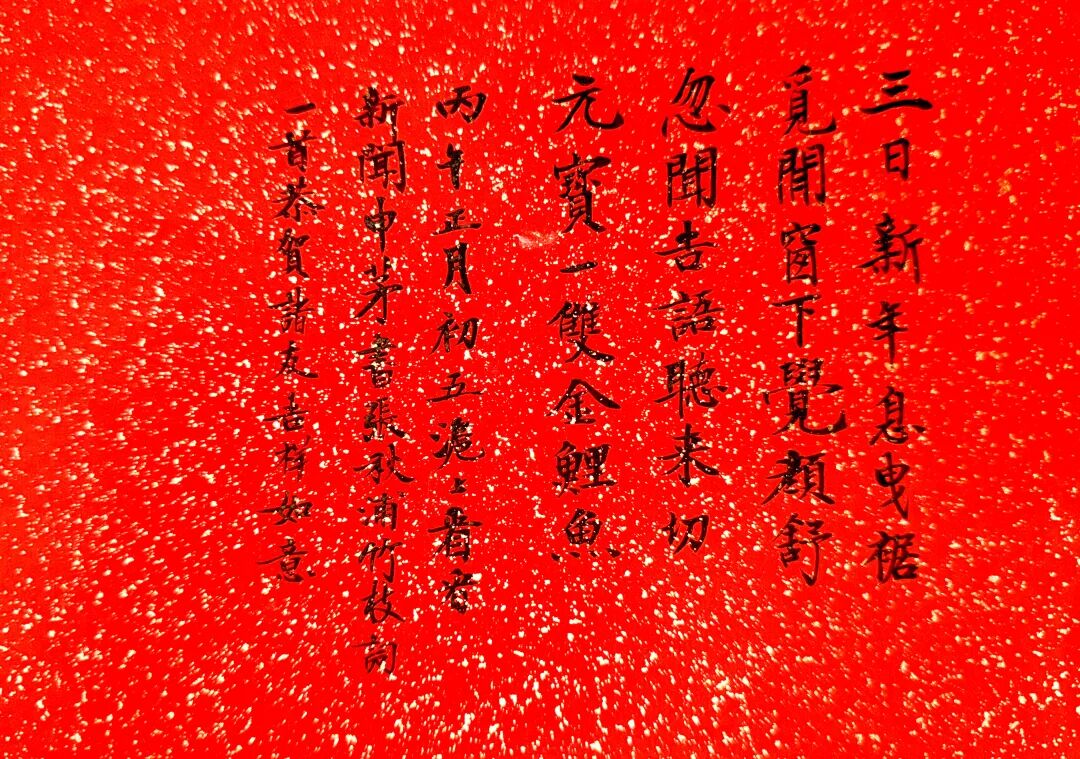 三日新年息曳裾
覓閒窗下覺顏舒
忽聞告語聽来切
元寶一雙金鯉魚
丙午正月初五滬上看
新聞申茅書張秋浦竹枝詞
一首恭賀諸友吉祥如意